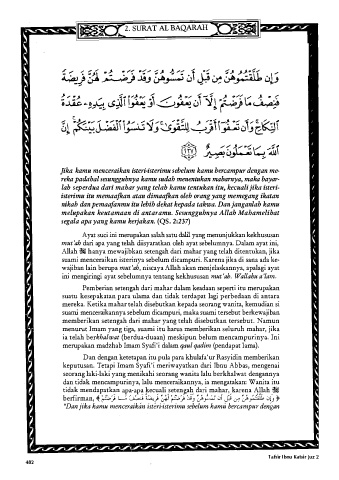 2. SURAT AL BAQARAH
وَإِن طَلَّقْتُمُوهُنَّ مِن قَبْلِ أَن تَمَسُّوهُنَّ وَقَدْ فَرَضْتُمْ لَهُنَّ فَرِيضَةً
فَنِصْفُ مَا فَرَضْتُمْ إِلَّا أَن يَعْفُونَ أَوْ يَعْفُوَا۟ الَّذِى بِيَدِهِۦ عُقْدَةُ
النِّكَاحِ وَأَن تَعْفُوٓا۟ أَقْرَبُ لِلتَّقْوَىٰ وَلَا تَنسَوُا۟ الْفَضْلَ بَيْنَكُمْ إِنَّ
اللَّهَ بِمَا تَعْمَلُونَ بَصِيرٌ ٢٣٧
Jika kamu menceraikan isteri-isterimu sebelum kamu bercampur dengan me-
reka padahal sesungguhnya kamu sudah menentukan maharnya, maka bayar-
lah seperdua dari mahar yang telah kamu tentukan itu, kecuali jika isteri-
isterimu itu memaafkan atau dimaafkan oleh orang yang memegang ikatan
nikah dan pemaafanmu itu lebih dekat kepada takwa. Dan janganlah kamu
melupakan keutamaan di antaramu. Sesungguhnya Allah Mahamelihat
segala apa yang kamu kerjakan. (QS. 2:237)
Ayat suci ini merupakan salah satu dalil yang menunjukkan kekhususan
mut'ah dari apa yang telah disyaratkan oleh ayat sebelumnya. Dalam ayat ini,
Allah ﷻ hanya mewajibkan setengah dari mahar yang telah ditentukan, jika
suami menceraikan isterinya sebelum dicampuri. Karena jika di sana ada ke-
wajiban lain berupa mut'ah, niscaya Allah akan menjelaskannya, apalagi ayat
ini mengiringi ayat sebelumnya tentang kekhususan mut'ah. Wallahu a'lam.
Pemberian setengah dari mahar dalam keadaan seperti itu merupakan
suatu kesepakatan para ulama dan tidak terdapat lagi perbedaan di antara
mereka. Ketika mahar telah disebutkan kepada seorang wanita, kemudian si
suami menceraikannya sebelum dicampuri, maka suami tersebut berkewajiban
memberikan setengah dari mahar yang telah disebutkan tersebut. Namun
menurut Imam yang tiga, suami itu harus memberikan seluruh mahar, jika
ia telah berkhalwat (berdua-duaan) meskipun belum mencampurinya. Ini
merupakan madzhab Imam Syafi'i dalam qaul qadim (pendapat lama).
Dan dengan ketetapan itu pula para khulafa'ur Rasyidin memberikan
keputusan. Tetapi Imam Syafi'i meriwayatkan dari Ibnu Abbas, mengenai
seorang laki-laki yang menikahi seorang wanita lalu berkhalwat dengannya
dan tidak mencampurinya, lalu menceraikannya, ia mengatakan: Wanita itu
tidak mendapatkan apa-apa kecuali setengah dari mahar, karena Allah ﷻ
berfirman, ﴿ وَإِن طَلَّقْتُمُوهُنَّ مِن قَبْلِ أَن تَمَسُّوهُنَّ وَقَدْ فَرَضْتُمْ لَهُنَّ فَرِيضَةً فَنِصْفُ مَا فَرَضْتُمْ ﴾
"Dan jika kamu menceraikan isteri-isterimu sebelum kamu bercampur dengan
482
Tafsir Ibnu Katsir Juz 2